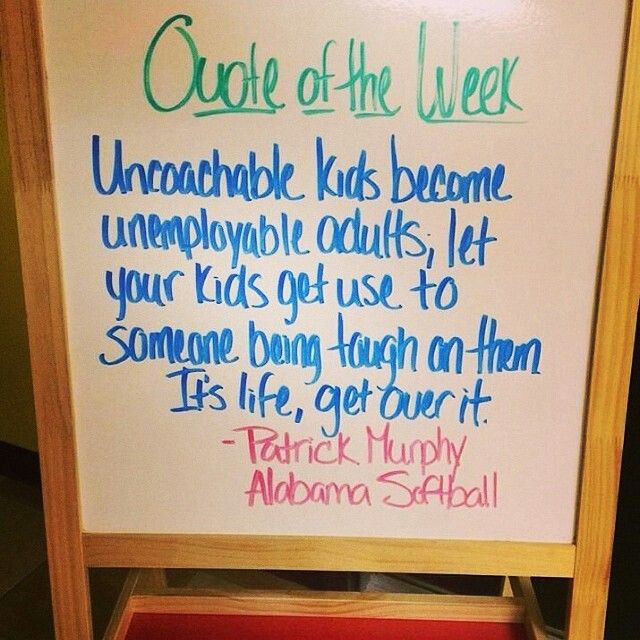 Quote of the Week
Uncoachable kids become
unemployable adults; let
your kids get use to
someone being tough on them
It's life, get over it.
- Patrick Murphy
Alabama Softball